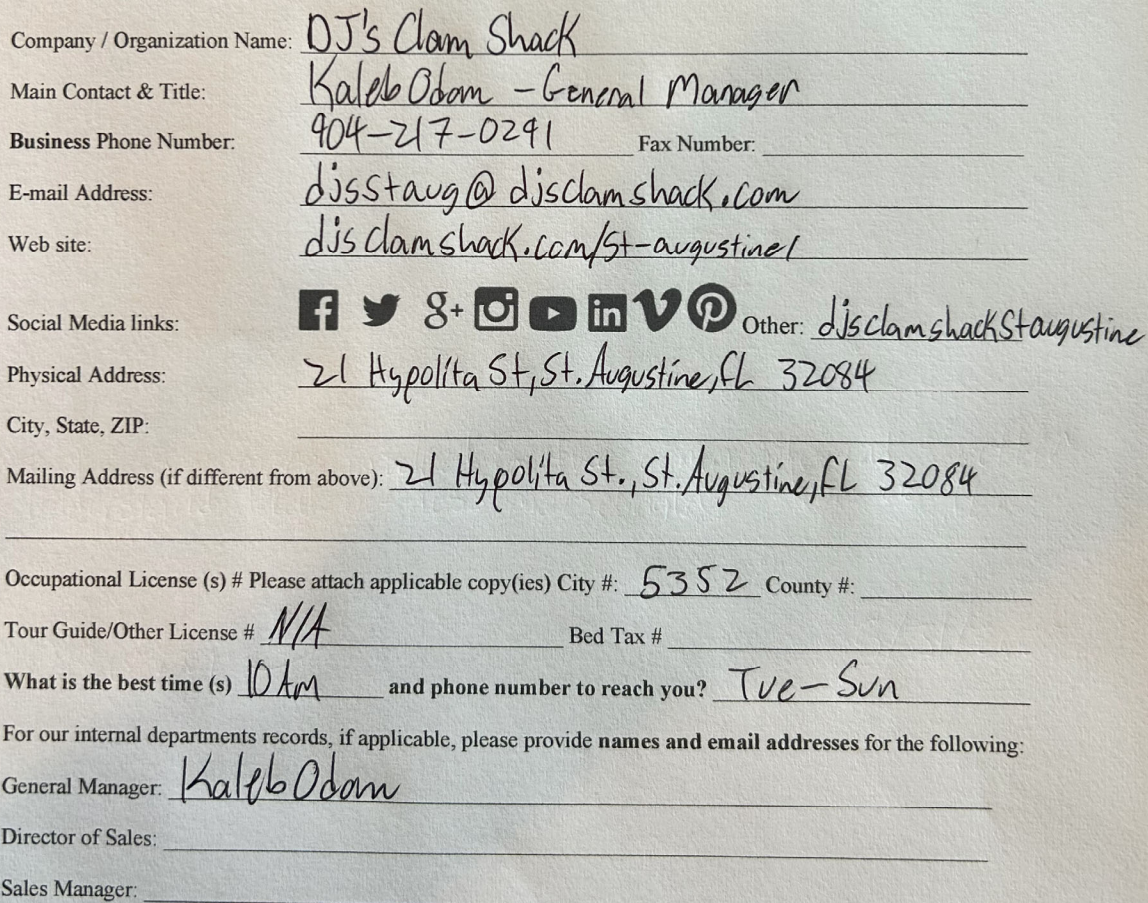 Company / Organization Name: DJ's Clam Shack
Main Contact & Title: Kaleb Odom - General Manager
Business Phone Number: 904-217-0291 Fax Number:
E-mail Address: djsstaug@djsclamshack.com
Web site: djsclamshack.com/st-augustine/
Social Media links: g+ in Other: djsclamshackstaugustine
Physical Address: 21 Hypolita St, St. Augustine, FL 32084
City, State, ZIP:
Mailing Address (if different from above): 21 Hypolita St., St. Augustine, FL 32084
Occupational License (s) # Please attach applicable copy(ies) City #: 5352 County #:
Tour Guide/Other License # N/A Bed Tax #
What is the best time (s) 10 Am and phone number to reach you? Tue-Sun
For our internal departments records, if applicable, please provide names and email addresses for the following:
General Manager: Kaleb Odom
Director of Sales:
Sales Manager: